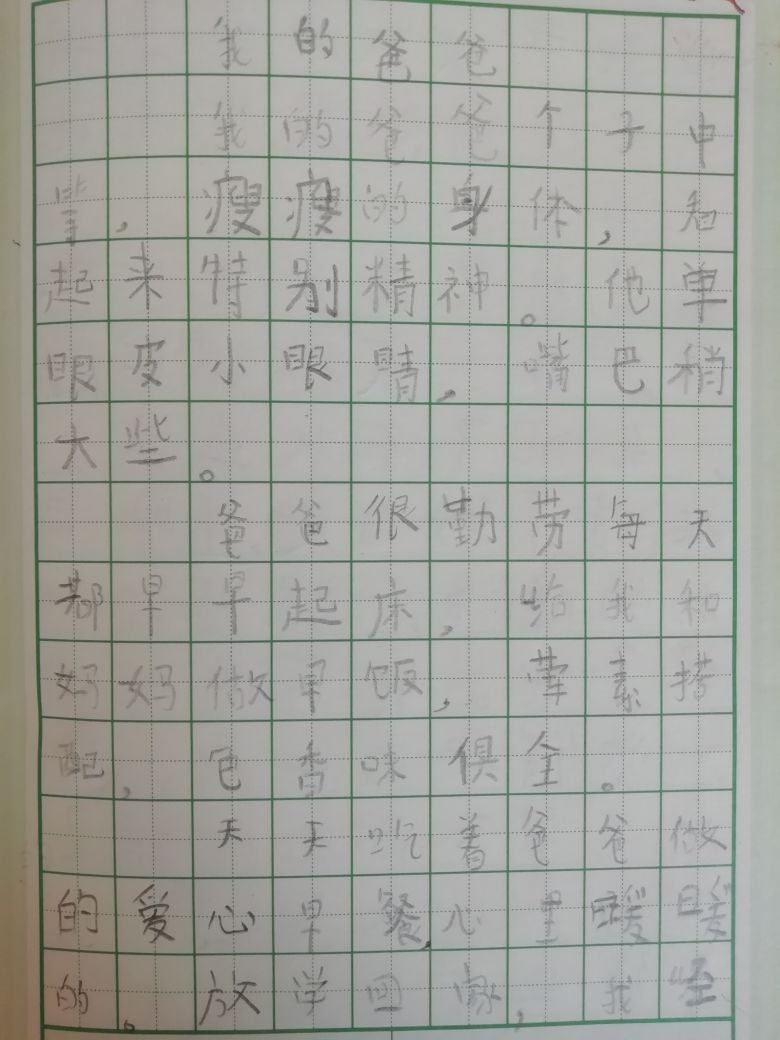 我的爸爸
我的爸爸个子中
等,瘦瘦的身体,
起来特别精神。他单
眼皮小眼睛,嘴巴稍
大些。
爸爸很勤劳每天
都早早起床,给我和
妈妈做早饭,荤素搭
配,色香味俱全。
天天吃着爸爸做
的爱心早餐,心里暖暖
的。放学回家,我